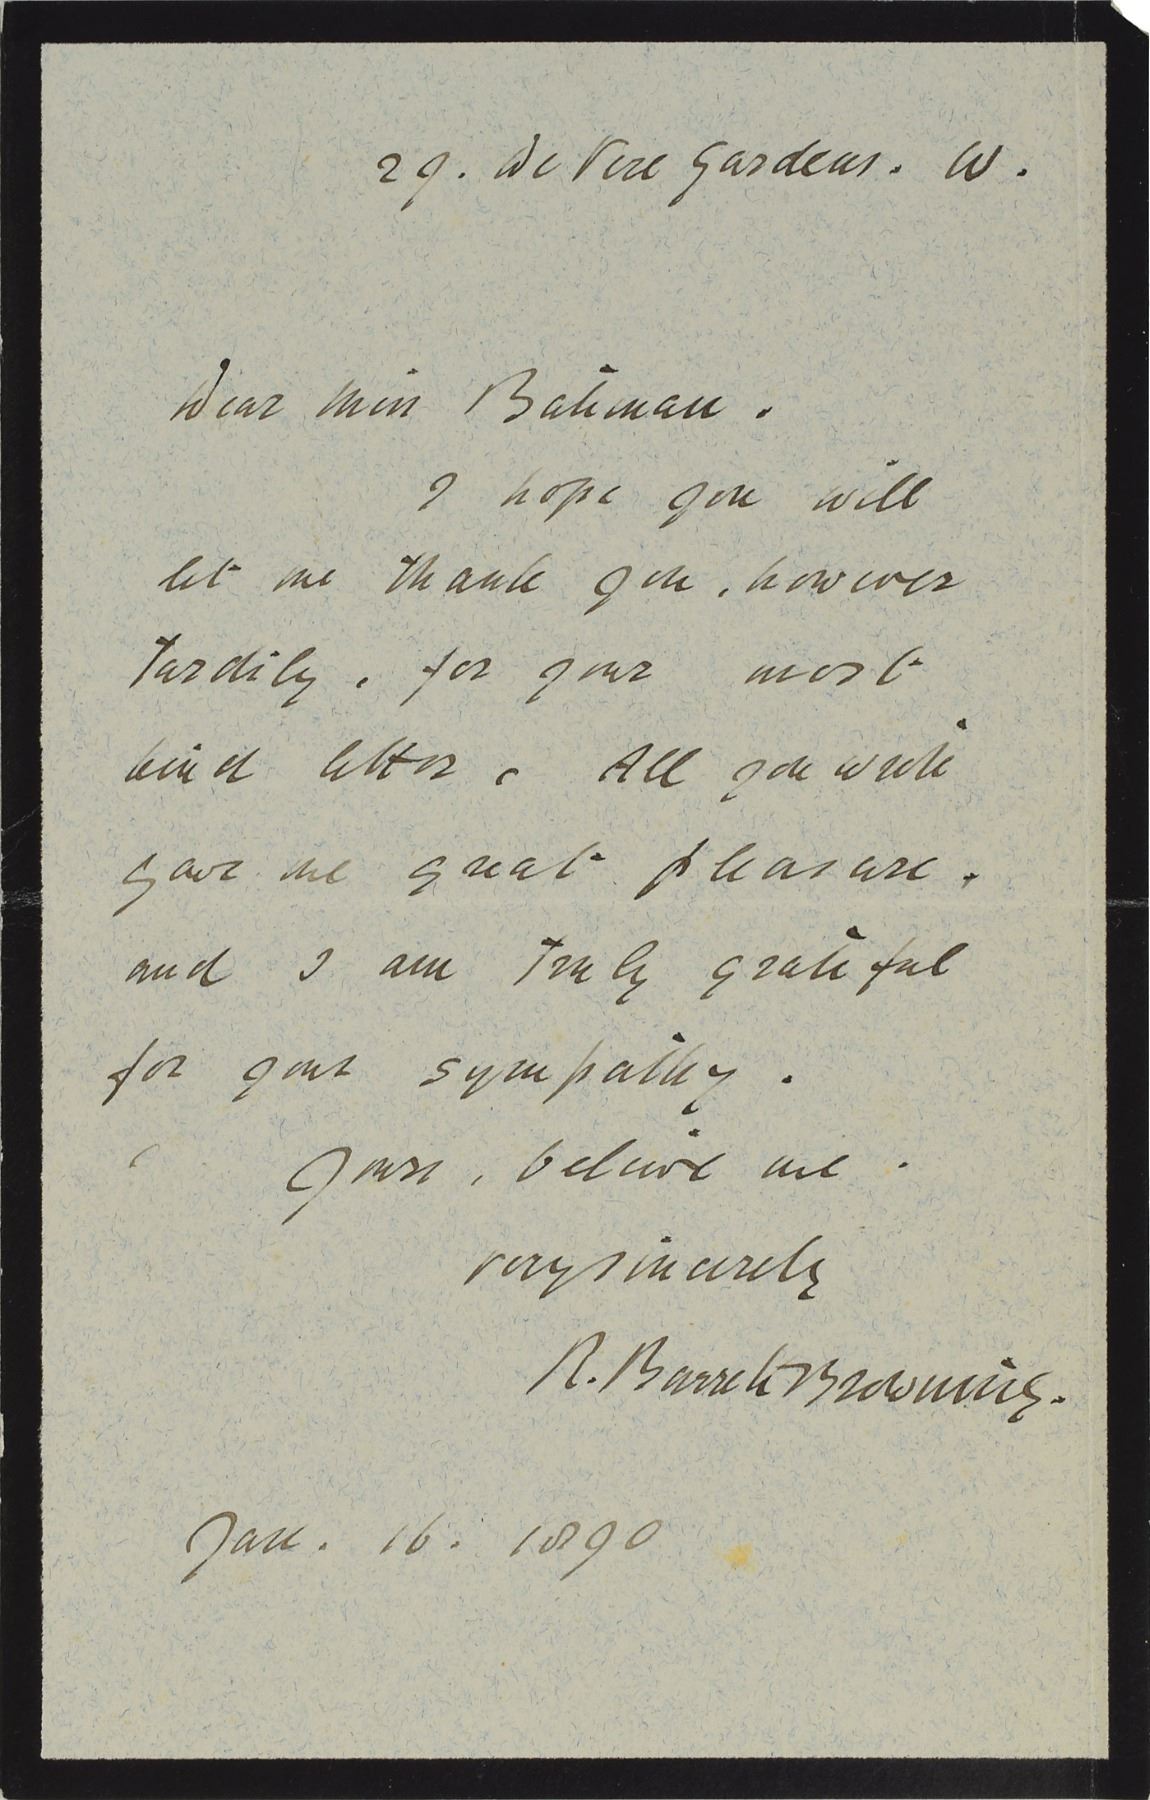 29. De Vere Gardens. W.
Dear Miss Bateman.
I hope you will
let me thank you, however
tardily, for your most
kind letter. All you write
gave me great pleasure,
and I am truly grateful
for your sympathy.
Yours, believe me.
very sincerely
R. Barrett Browning.
Jan. 16. 1890